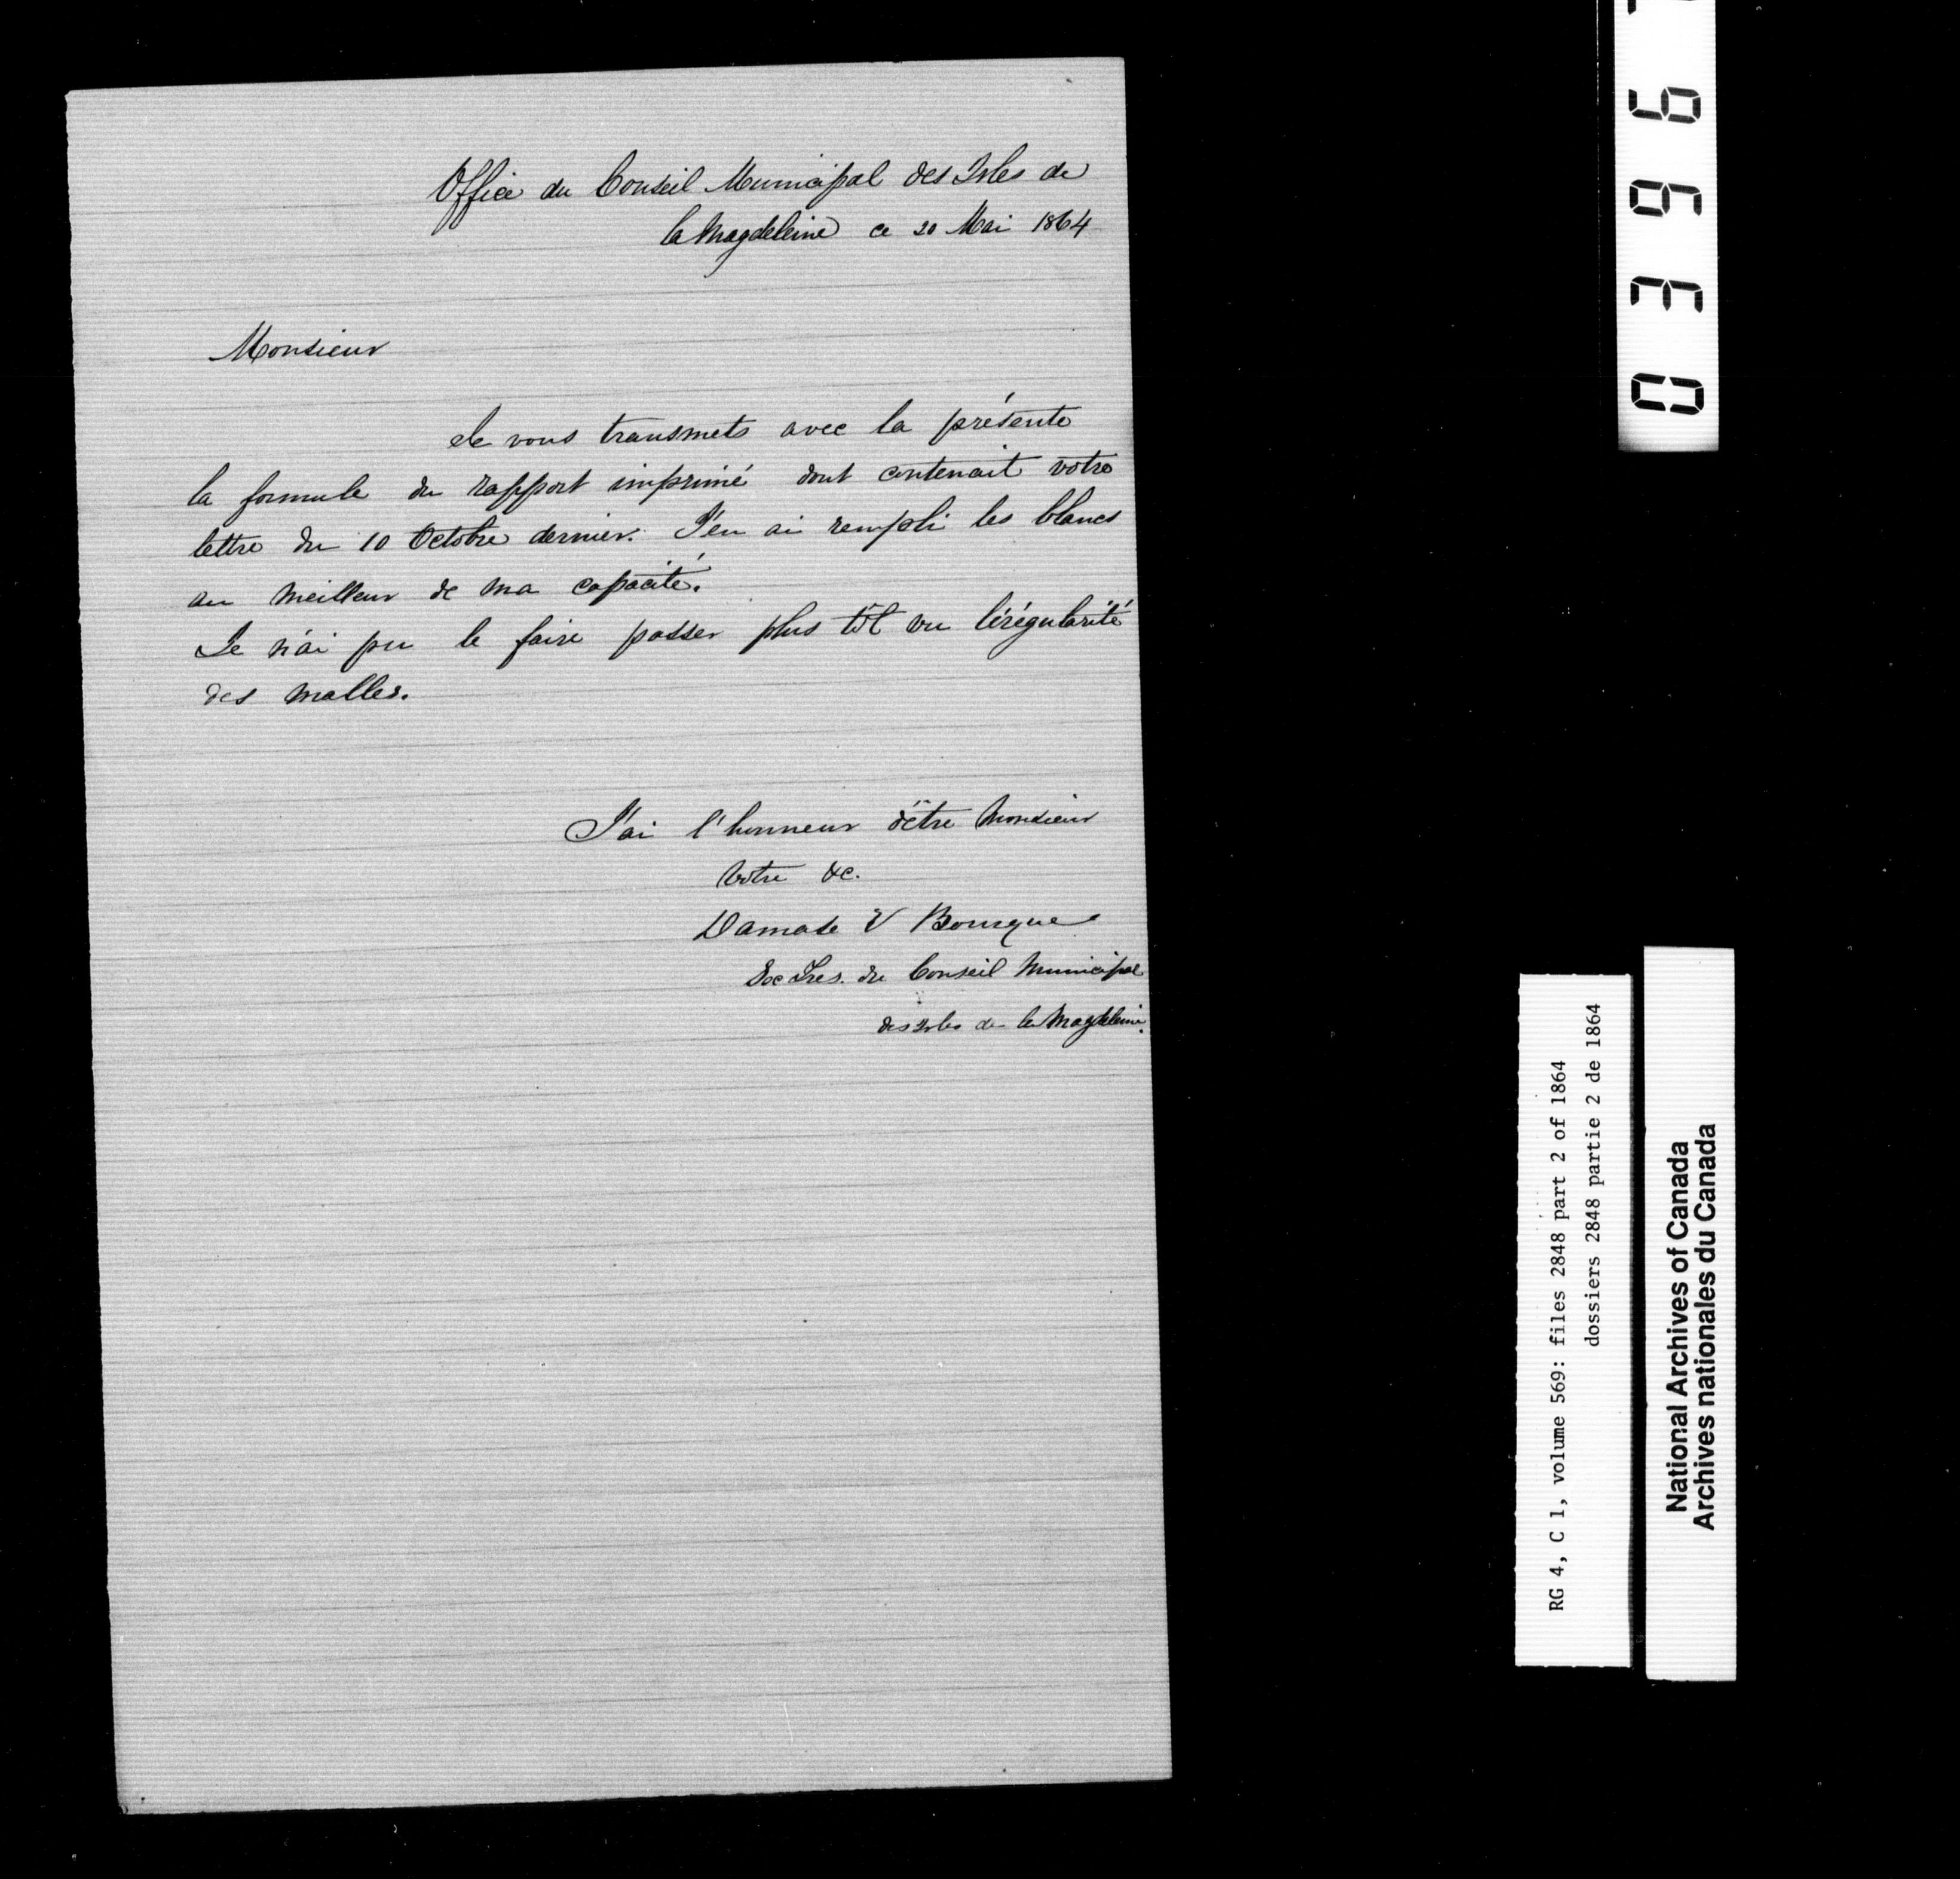 Office du Conseil Municipal des Isles de
la Magdeleine ce 20 Mai 1864
Monsieur
Je vous transmets avec la présente
la formule du rapport imprimé dont contenait votre
lettre du 10 Octobre dernier. J'en ai rempli les blancs
au meilleur de ma capacité.
Je n'ai pu le faire passer plus tôt vu l'érégularité
des malles.
J'ai l'honneur d'être Monsieur
Votre &c.
Damase V Bourque
Sec Tres. du Conseil Municipal
des Isles de la Magdeleine.
0396
RG 4, C 1, volume 569: files 2848 part 2 of 1864
dossiers 2848 partie 2 de 1864
National Archives of Canada
Archives nationales du Canada